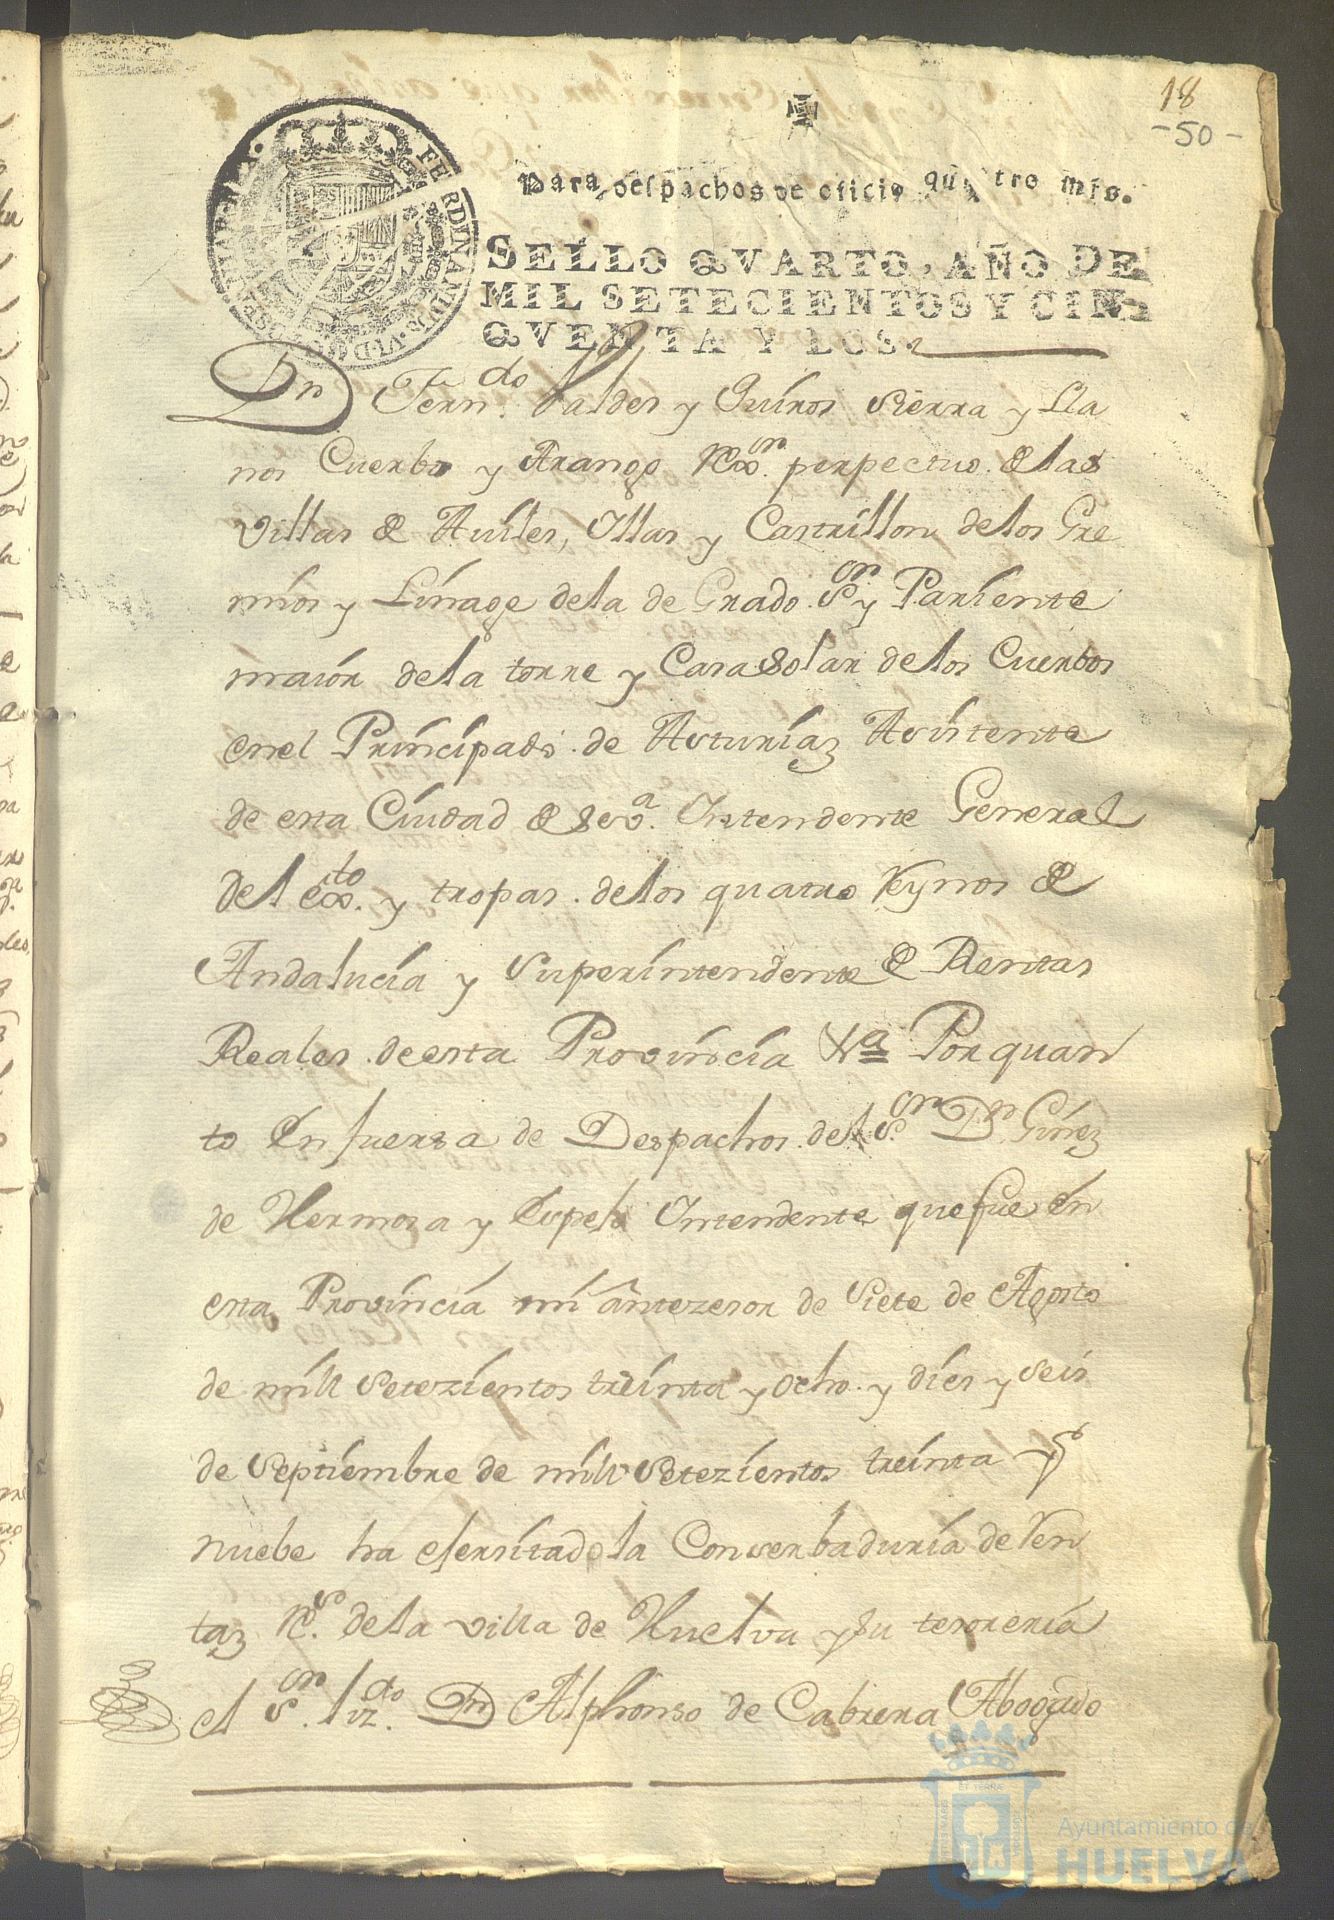 18
-50-
Para despachos de oficio quatro mrs.
SELLO QVARTO, AÑO DE
MIL SETECIENTOS Y CIN
QVENTA Y DOS.
FERDINANDUS.VI.D.G.
Dn Ferndo. Valdes y Quiros Sierra y Lla
nos Cuerbo y Arango Rexor. perpectuo de las
Villas de Auiles, Yllas y Castrillon de los Gre
mios y Linage de la de Grado Sor. y Pariente
maior de la torre y Casa Solar de los Cuerbos
enel Principado de Asturias Asistente
de esta Ciudad de Seva. Yntendente General
del exto. y tropas de los quatro Reynos de
Andalucia y Superintendente de Rentas
Reales de esta Provincia Xa Porquan
to en fuerza de Despachos del Sor. Dn Ginez
de Hermosa y Espejo Yntendente que fue en
esta Provincia mi antezesor de Siete de Agosto
de mill Setezientos treinta y ocho y dies y seis
de Septiembre de mill Setezientos treinta y
nuebe ha eserzitado la Conserbaduria de Ren
taz Rs. de la villa de Huelva y su tesoreria
el Sor. lizdo. Dn Alphonso de Cabrera Abogado
Ayuntamiento de
HUELVA